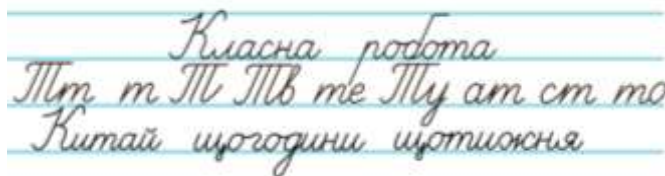 Класна робота
Тт т Т Тв те Ту ат ст то
Китай щогодини щотижня